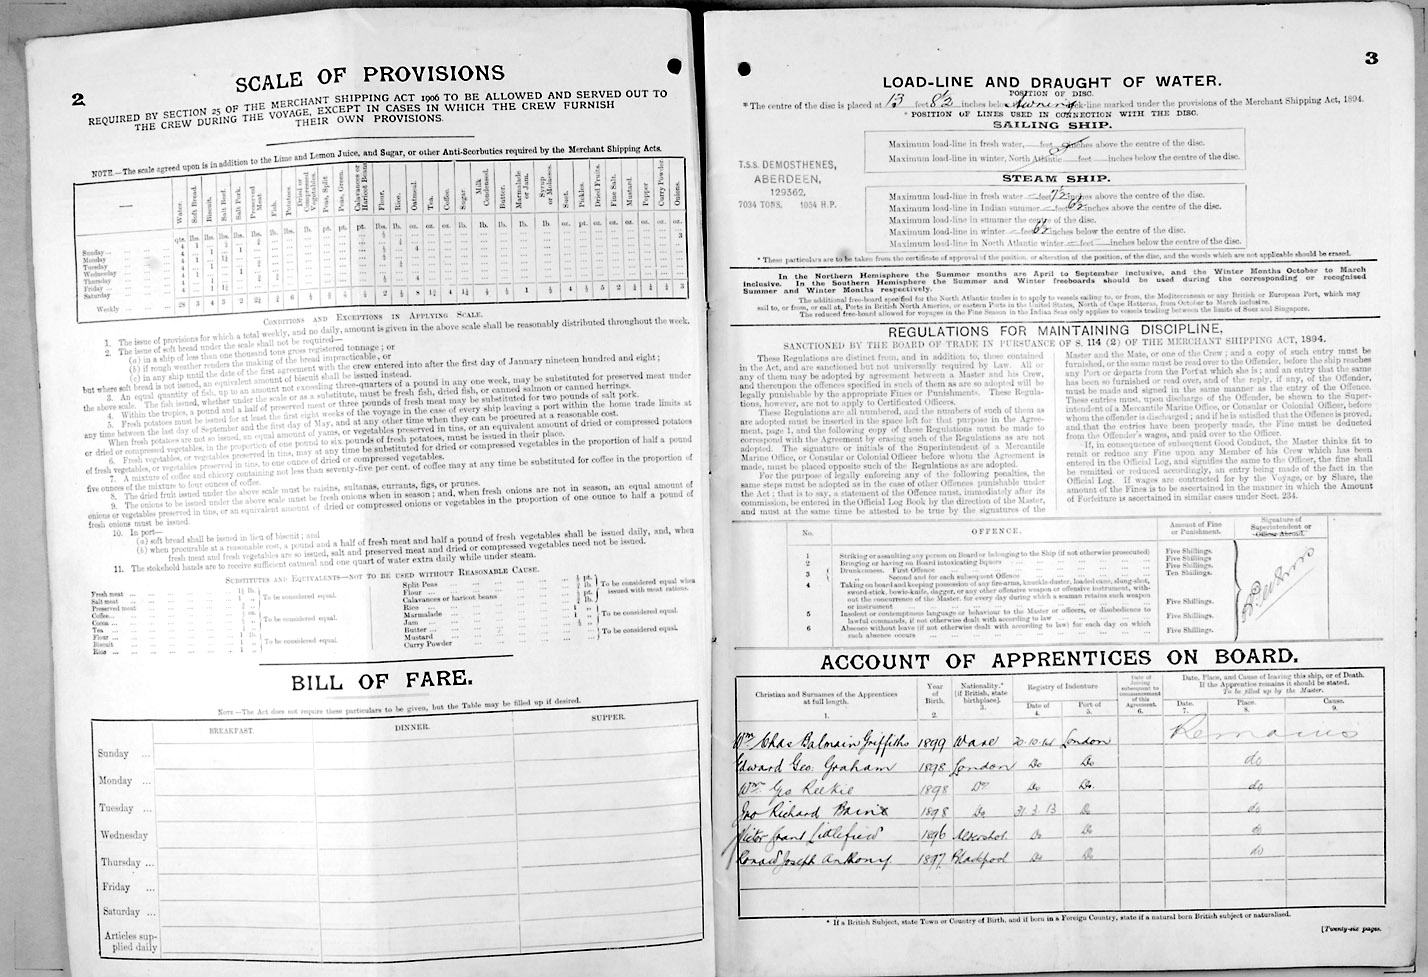 2
SCALE OF PROVISIONS
REQUIRED BY SECTION 25 OF THE MERCHANT SHIPPING ACT 1906 TO BE ALLOWED AND SERVED OUT TO
THE CREW DURING THE VOYAGE, EXCEPT IN CASES IN WHICH THE CREW FURNISH
THEIR OWN PROVISIONS.
NOTE.—The scale agreed upon is in addition to the Lime and Lemon Juice, and Sugar, or other Anti-Scorbutics required by the Merchant Shipping Acts.
Water. Soft Bread. Biscuit. Salt Beef. Salt Pork. Preserved Meat. Fish. Potatoes. Dried or Compressed Vegetables. Peas, Split. Peas, Green. Calavances or Haricot Beans. Flour. Rice. Oatmeal. Tea. Coffee. Sugar. Milk Condensed. Butter. Marmalade or Jam. Syrup or Molasses. Suet. Pickles. Dried Fruits. Fine Salt. Mustard. Pepper. Curry Powder. Onions.
qts. lbs. lbs. lbs. lbs. lbs. lb. lbs. lb. pt. pt. pt. lbs. lb. oz. oz. oz. lb. lb. lb. lb. lb. oz. pt. oz. oz. oz. oz. oz. oz.
Sunday
Monday
Tuesday
Wednesday
Thursday
Friday
Saturday
Weekly
CONDITIONS AND EXCEPTIONS IN APPLYING SCALE.
1. The issue of provisions for which a total weekly, and no daily, amount is given in the above scale shall be reasonably distributed throughout the week.
2. The issue of soft bread under the scale shall not be required—
(a) in a ship of less than one thousand tons gross registered tonnage; or
(b) if rough weather renders the making of the bread impracticable, or
(c) in any ship until the date of the first agreement with the crew entered into after the first day of January nineteen hundred and eight;
but where soft bread is not issued, an equivalent amount of biscuit shall be issued instead.
3. An equal quantity of fish, up to an amount not exceeding three-quarters of a pound in any one week, may be substituted for preserved meat under
the above scale. The fish issued, whether under the scale or as a substitute, must be fresh fish, dried fish, or canned salmon or canned herrings.
4. Within the tropics, a pound and a half of preserved meat or three pounds of fresh meat may be substituted for two pounds of salt pork.
5. Fresh potatoes must be issued for at least the first eight weeks of the voyage in the case of every ship leaving a port within the home trade limits at
any time between the last day of September and the first day of May, and at any other time when they can be procured at a reasonable cost.
When fresh potatoes are not so issued, an equal amount of yams, or vegetables preserved in tins, or an equivalent amount of dried or compressed potatoes
or dried or compressed vegetables, in the proportion of one pound to six pounds of fresh potatoes, must be issued in their place.
6. Fresh vegetables, or vegetables preserved in tins, may at any time be substituted for dried or compressed vegetables in the proportion of half a pound
of fresh vegetables, or vegetables preserved in tins, to one ounce of dried or compressed vegetables.
7. A mixture of coffee and chicory containing not less than seventy-five per cent. of coffee may at any time be substituted for coffee in the proportion of
five ounces of the mixture to four ounces of coffee.
8. The dried fruit issued under the above scale must be raisins, sultanas, currants, figs, or prunes.
9. The onions to be issued under the above scale must be fresh onions when in season; and, when fresh onions are not in season, an equal amount of
onions or vegetables preserved in tins, or an equivalent amount of dried or compressed onions or vegetables in the proportion of one ounce to half a pound of
fresh onions must be issued.
10. In port—
(a) soft bread shall be issued in lieu of biscuit; and
(b) when procurable at a reasonable cost, a pound and a half of fresh meat and half a pound of fresh vegetables shall be issued daily, and, when
fresh meat and fresh vegetables are so issued, salt and preserved meat and dried or compressed vegetables need not be issued.
11. The stokehold hands are to receive sufficient oatmeal and one quart of water extra daily while under steam.
SUBSTITUTES AND EQUIVALENTS—NOT TO BE USED WITHOUT REASONABLE CAUSE.
Fresh meat
Salt meat
Preserved meat
To be considered equal.
Coffee
Cocoa
Tea
To be considered equal.
Flour
Biscuit
Rice
To be considered equal.
Split Peas
Flour
Calavances or haricot beans
Rice
To be considered equal when issued with meat rations.
Marmalade
Jam
Butter
To be considered equal.
Mustard
Curry Powder
To be considered equal.
BILL OF FARE.
NOTE—The Act does not require these particulars to be given, but the Table may be filled up if desired.
BREAKFAST. DINNER. SUPPER.
Sunday
Monday
Tuesday
Wednesday
Thursday
Friday
Saturday
Articles supplied daily
3
LOAD-LINE AND DRAUGHT OF WATER.
POSITION OF DISC.
* The centre of the disc is placed at 13 feet 8½ inches below Awning deck-line marked under the provisions of the Merchant Shipping Act, 1894.
* POSITION OF LINES USED IN CONNECTION WITH THE DISC.
SAILING SHIP.
Maximum load-line in fresh water, feet inches above the centre of the disc.
Maximum load-line in winter, North Atlantic feet inches below the centre of the disc.
T.S.S. DEMOSTHENES,
ABERDEEN,
129362.
7034 TONS. 1034 H.P.
STEAM SHIP.
Maximum load-line in fresh water — feet 7½ inches above the centre of the disc.
Maximum load-line in Indian summer — feet 6½ inches above the centre of the disc.
Maximum load-line in summer the centre of the disc.
Maximum load-line in winter — feet 6½ inches below the centre of the disc.
Maximum load-line in North Atlantic winter — feet — inches below the centre of the disc.
* These particulars are to be taken from the certificate of approval of the position, or alteration of the position, of the disc, and the words which are not applicable should be erased.
In the Northern Hemisphere the Summer months are April to September inclusive, and the Winter Months October to March
inclusive. In the Southern Hemisphere the Summer and Winter freeboards should be used during the corresponding or recognised
Summer and Winter Months respectively.
The additional free-board specified for the North Atlantic trades is to apply to vessels sailing to, or from, the Mediterranean or any British or European Port, which may
sail to, or from, or call at, Ports in British North America, or eastern Ports in the United States, North of Cape Hatteras, from October to March inclusive.
The reduced free-board allowed for voyages in the Fine Season in the Indian Seas only applies to vessels trading between the limits of Suez and Singapore.
REGULATIONS FOR MAINTAINING DISCIPLINE,
SANCTIONED BY THE BOARD OF TRADE IN PURSUANCE OF S. 114 (2) OF THE MERCHANT SHIPPING ACT, 1894.
These Regulations are distinct from, and in addition to, those contained
in the Act, and are sanctioned but not universally required by Law. All or
any of them may be adopted by agreement between a Master and his Crew,
and thereupon the offences specified in such of them as are so adopted will be
legally punishable by the appropriate Fines or Punishments. These Regula-
tions, however, are not to apply to Certificated Officers.
These Regulations are all numbered, and the numbers of such of them as
are adopted must be inserted in the space left for that purpose in the Agree-
ment, page 1, and the following copy of these Regulations must be made to
correspond with the Agreement by erasing such of the Regulations as are not
adopted. The signature or initials of the Superintendent of a Mercantile
Marine Office, or Consular or Colonial Officer before whom the Agreement is
made, must be placed opposite such of the Regulations as are adopted.
For the purpose of legally enforcing any of the following penalties, the
same steps must be adopted as in the case of other Offences punishable under
the Act; that is to say, a statement of the Offence must, immediately after its
commission, be entered in the Official Log Book by the direction of the Master,
and must at the same time be attested to be true by the signatures of the
Master and the Mate, or one of the Crew; and a copy of such entry must be
furnished, or the same must be read over to the Offender, before the ship reaches
any Port or departs from the Port at which she is; and an entry that the same
has been so furnished or read over, and of the reply, if any, of the Offender,
must be made and signed in the same manner as the entry of the Offence.
These entries must, upon discharge of the Offender, be shewn to the Super-
intendent of a Mercantile Marine Office, or Consular or Colonial Officer, before
whom the offender is discharged; and if he is satisfied that the Offence is proved,
and that the entries have been properly made, the Fine must be deducted
from the Offender's wages, and paid over to the Officer.
If, in consequence of subsequent Good Conduct, the Master thinks fit to
remit or reduce any Fine upon any Member of his Crew which has been
entered in the Official Log, and signifies the same to the Officer, the fine shall
be remitted or reduced accordingly, an entry being made of the fact in the
Official Log. If wages are contracted for by the Voyage, or by Share, the
amount of the Fines is to be ascertained in the manner in which the Amount
of Forfeiture is ascertained in similar cases under Sect. 234.
No. OFFENCE. Amount of Fine or Punishment. Signature of Superintendent or Officer Abroad.
1 Striking or assaulting any person on Board or belonging to the Ship (if not otherwise prosecuted) Five Shillings.
2 Bringing or having on Board intoxicating liquors Five Shillings.
3 Drunkenness. First Offence Five Shillings.
„ Second and for each subsequent Offence Ten Shillings.
4 Taking on board and keeping possession of any fire-arms, knuckle-duster, loaded cane, slung-shot,
sword-stick, bowie-knife, dagger, or any other offensive weapon or offensive instrument, with-
out the concurrence of the Master, for every day during which a seaman retains such weapon
or instrument Five Shillings.
5 Insolent or contemptuous language or behaviour to the Master or officers, or disobedience to
lawful commands, if not otherwise dealt with according to law Five Shillings.
6 Absence without leave (if not otherwise dealt with according to law) for each day on which
such absence occurs Five Shillings.
ACCOUNT OF APPRENTICES ON BOARD.
Christian and Surnames of the Apprentices at full length. Year of Birth. Nationality.* [if British, state birthplace]. Registry of Indenture Date of Joining subsequent to commencement of this Agreement. Date, Place, and Cause of leaving this ship, or of Death. If the Apprentice remains it should be stated. To be filled up by the Master.
Date of Port of Date. Place. Cause.
1. 2. 3. 4. 5. 6. 7. 8. 9.
Wm Chas Balmain Griffiths 1899 Ware London Remains
Edward Geo. Graham 1898 London Do Do do
Wm Geo Reekie 1898 Do Do Do. do
Jno Richard 1898 Do 31.3.13 Do do
Victor Grant 1896 Aldershot Do Do do
Ronald Joseph Anthony 1897 Blackpool Do Do do
* If a British Subject, state Town or Country of Birth, and if born in a Foreign Country, state if a natural born British subject or naturalised.
[Twenty-six pages.